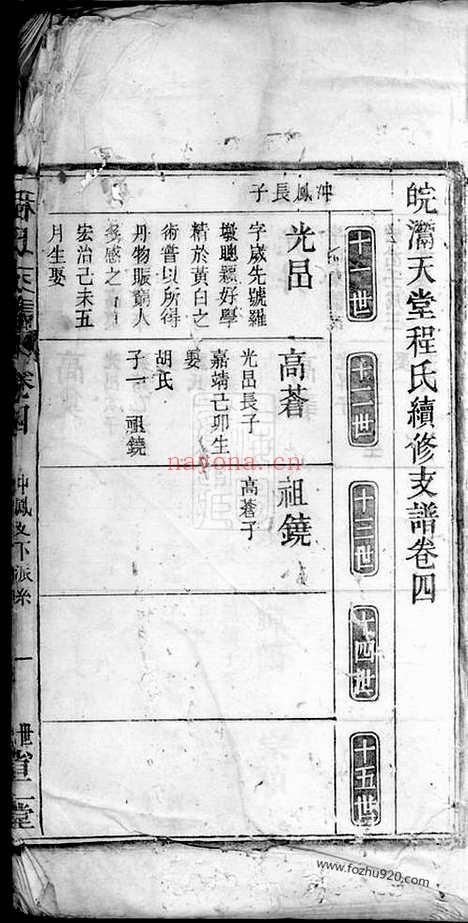 皖灊天堂程氏續修支譜卷四
十一世
十二世
十三世
十四世
十五世
沖鳳長子
光昌
字歲先號羅
墩聰穎好學
精於黃白之
術嘗以所得
丹物賑窮人
多感之
宏治己未五
月生娶
高蒼
光昌長子
嘉靖己卯生
娶
胡氏
子一 祖鐃
祖鐃
高蒼子
卷四
沖鳳支下派系
一
世
堂
nayona.cn
www.fozhu920.com